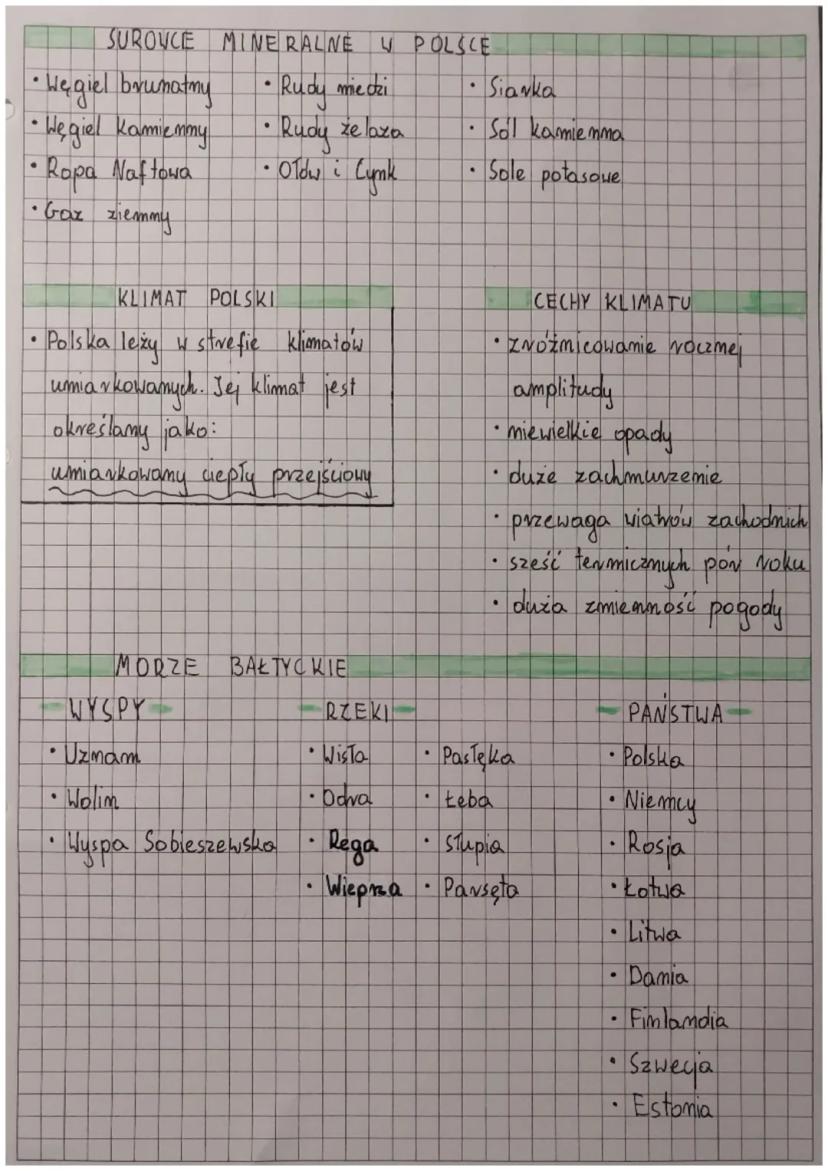 SUROWCE MINERALNE W POLSCE
• Węgiel brunatny
• Węgiel kamienny
• Ropa Naftowa
• Gaz ziemny
• Rudy miedzi
• Rudy żelaza
• Ołów i Cynk
• Siarka
• Sól kamienna
• Sole potasowe
KLIMAT POLSKI
• Polska leży w strefie klimatów
umiarkowanych. Jej klimat jest
określany jako:
umiarkowany ciepły przejściowy
CECHY KLIMATU
• zróżnicowanie rocznej
amplitudy
• niewielkie opady
• duże zachmurzenie
• przewaga wiatrów zachodnich
• sześć termicznych pór roku
• duża zmienność pogody
MORZE BAŁTYCKIE
- WYSPY -
• Uznam
• Wolin
• Wyspa Sobieszewska
- RZEKI -
• Wisła
• Odra
• Rega
• Wieprza
• Pasłęka
• Łeba
• Słupia
• Parsęta
- PAŃSTWA -
• Polska
• Niemcy
• Rosja
• Łotwa
• Litwa
• Dania
• Finlandia
• Szwecja
• Estonia